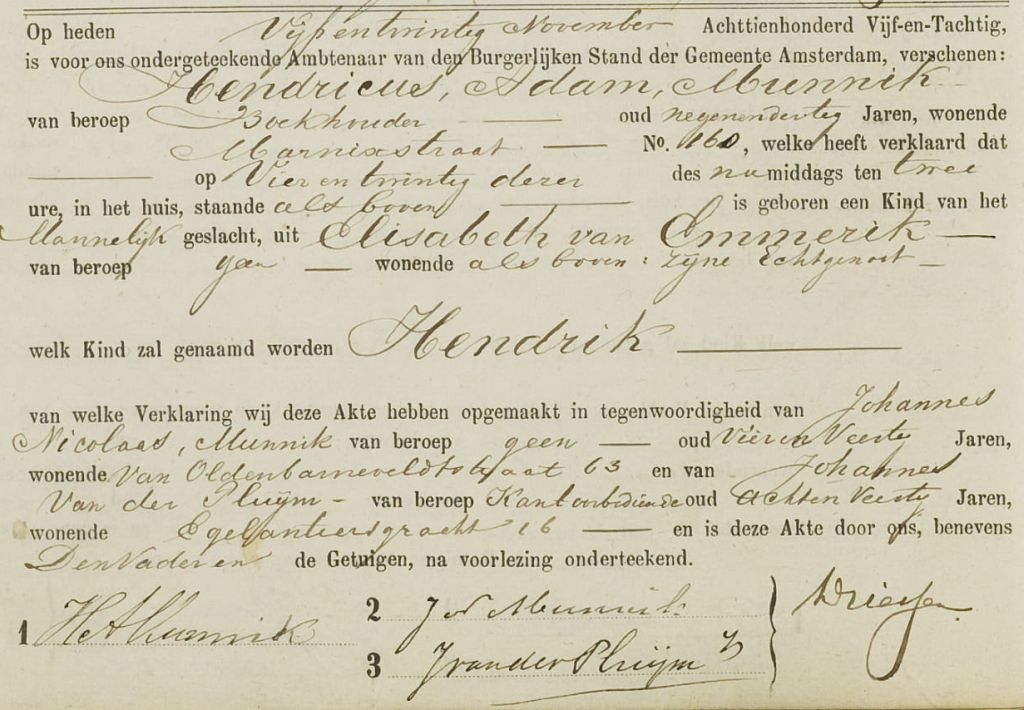 Op heden Vijf en twintig November Achttienhonderd Vijf-en-Tachtig,
is voor ons ondergeteekende Ambtenaar van den Burgerlijken Stand der Gemeente Amsterdam, verschenen:
Hendricus, Adam, Munnik
van beroep Boekhouder oud negenendertig Jaren, wonende
Marnixstraat No. 160, welke heeft verklaard dat
op Vier en twintig dezer des namiddags ten twee
ure, in het huis, staande als boven is geboren een Kind van het
Mannelijk geslacht, uit Elisabeth van Emmerik
van beroep geen wonende als boven: zijne Echtgenoot
welk Kind zal genaamd worden Hendrik
van welke Verklaring wij deze Akte hebben opgemaakt in tegenwoordigheid van Johannes
Nicolaas, Munnik van beroep geen oud Vier en Veertig Jaren,
wonende Van Oldenbarneveldtstraat 63 en van Johannes
Van der Pluijm van beroep Kantoorbediende oud Acht en Veertig Jaren,
wonende Egelantiersgracht 16 en is deze Akte door ons, benevens
Den Vader en de Getuigen, na voorlezing onderteekend.
1 HA Munnik 2 JN Munnik
3 J van der Pluijm